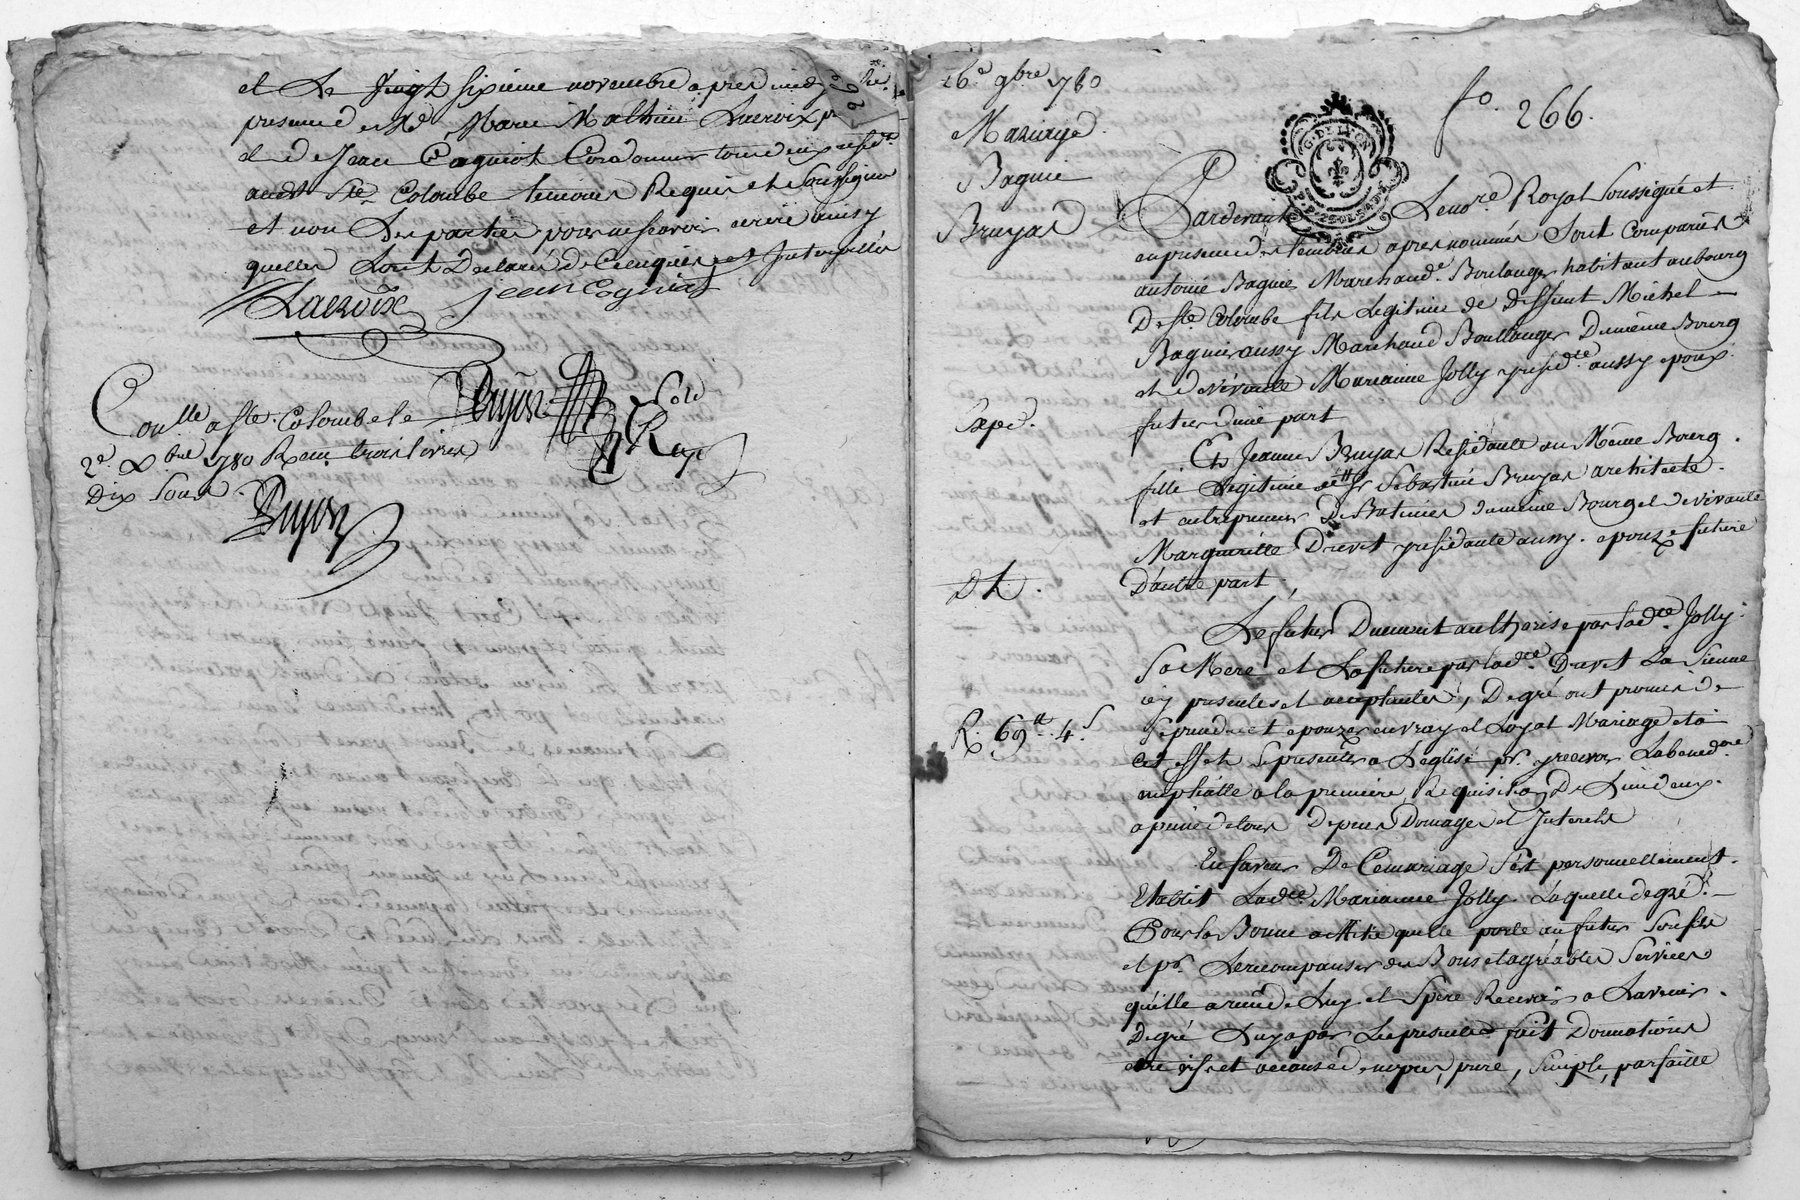 et Le Vingt sixieme novembre apres midy
presence de Me Marc Mathieu Lacroix
et de Jean Cogniot Cordonnier tous deux resid.
audt Ste Colombe temoins Requis et Soussignes
et non Les parties pour ne scavoir ecrire ainsy
quelles Sont Declaré de Ce enquises et Interpellés
Lacroix jean Cogniat
Dujon
Conlle a Ste. Colombe le
2e. Xbre 1780 Reçu trois livres
Dix Sous
Dujon
16e 9bre 1780
Mariage
Baguie
Bruyas
Exped.
R. 69 4s
fo. 266.
G. DE LYON
Pardevant Le no.re Royal Soussigné et
en presence des temoins apres nommés Sont Comparus
antoine Baguie Marchand Boulanger habitant au bourg
De Ste Colombe fils Legitime de deffunt Michel
Baguie aussy Marchand Boullanger Du meme Bourg
et de vivante Marianne Jolly y resid.te aussy epoux
futur d'une part
Et Jeanne Bruyas Residante au Même Bourg
fille Legitime de Sr Sebastien Bruyas architecte
et entrepreneur De Batimens du meme Bourg et de vivante
Marguerite Drevet y residante aussy. epouze future
D'autre part.
Le futur Dument authorisé par lad.te Jolly
Sa Mere et La future par lad.te Drevet La Sienne
icy presentes et acceptantes, De gré ont promis de
Se prendre et epouzer en vray et Loyal Mariage et a
cet effet Se presenter a L'eglise pr. y recevoir La bened.on
nuptialle a la premiere Requisition De L'un d'eux
a peine de tous Depens Domages et Interets
En faveur De Ce mariage S'est personnellement
Etablit Lad.te Marianne Jolly Laquelle de gré
Pour la Bonne amitié qu'elle porte au futur Son fils
et pr. Le recompanser des Bons et agréables Services
qu'elle a reçu de Luy et Spère Recevoir a L'avenir
De gré Luy a par Les presentes fait Donnation
entre vifs et a cause de noces, pure, Simple, parfaitte